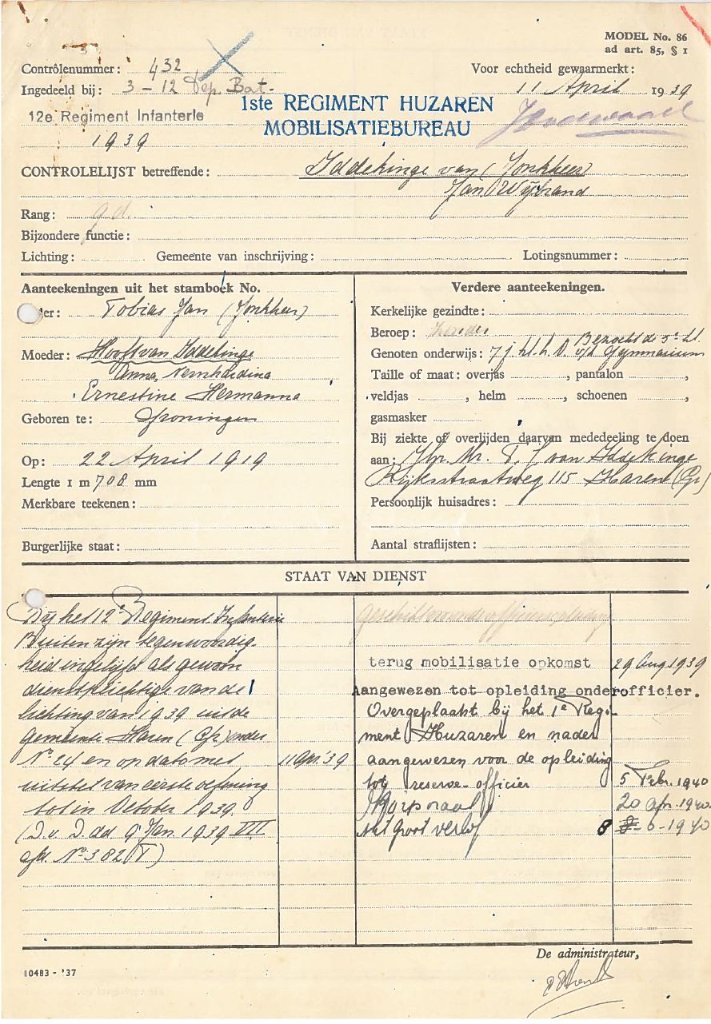 MODEL No. 86
ad art. 85, § 1
Contrôlenummer: 432
Voor echtheid gewaarmerkt:
Ingedeeld bij: 3-12 Dep. Bat.
11 April 1939
1ste REGIMENT HUZAREN
MOBILISATIEBUREAU
12e Regiment Infanterie
1939
CONTROLELIJST betreffende: Iddekinge van (Jonkheer)
Jan Wijbrand
Rang: gd.
Bijzondere functie:
Lichting: Gemeente van inschrijving: Lotingsnummer:
Aanteekeningen uit het stamboek No.
der: Tobias Jan (Jonkheer)
Moeder: Hooft van Iddekinge
Anna Bernhardina
Ernestine Hermanna
Geboren te: Groningen
Op: 22 April 1919
Lengte 1 m 708 mm
Merkbare teekenen:
Burgerlijke staat:
Verdere aanteekeningen.
Kerkelijke gezindte:
Beroep: zonder
Bezocht de 5e kl.
Genoten onderwijs: 7 j. kl. h. O. v/h Gymnasium
Taille of maat: overjas , pantalon ,
veldjas , helm , schoenen ,
gasmasker
Bij ziekte of overlijden daarvan mededeeling te doen
aan: Jhr. Mr. T. J. van Iddekinge
Rijksstraatweg 115 Haren (Gr.)
Persoonlijk huisadres:
Aantal straflijsten:
STAAT VAN DIENST
Bij het 12e Regiment Infanterie
buiten zijn tegenwoordig-
heid ingelijfd als gewoon
dienstplichtige van de
lichting van 1939 uit de
gemeente Haren (Gr.) onder
No. 24 en op dato met 11 Apr. '39
uitstel van eerste oefening
tot in October 1939.
(D.v.D. dd 9 Jan. 1939 III
afd. No 382 T)
geschikt voor onderofficiersopleiding
terug mobilisatie opkomst 29 Aug 1939
Aangewezen tot opleiding onderofficier.
Overgeplaatst bij het 1e Regi-
ment Huzaren en nader
aangewezen voor de opleiding
tot reserve-officier 5 Febr. 1940
Korporaal 20 apr. 1940.
Met groot verlof 8-6-1940
De administrateur,
10483 - '37